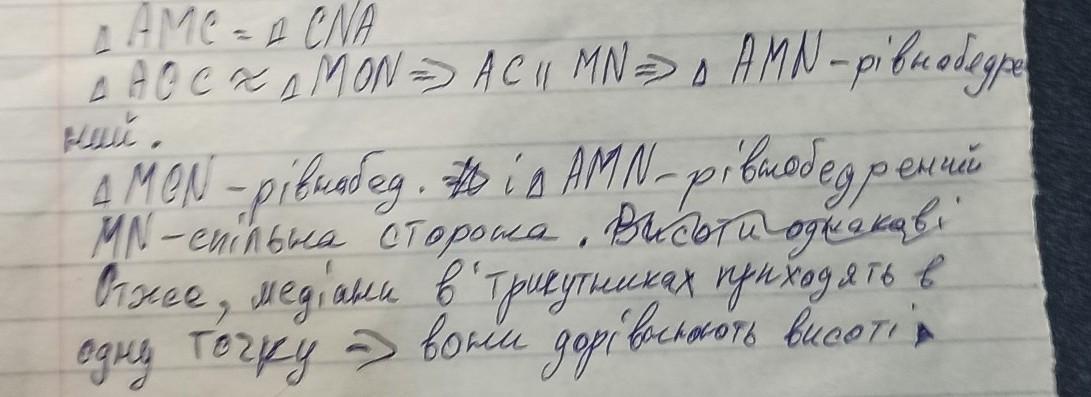 △ AMC = △ CNA
△ AOC ~ △ MON ⇒ AC || MN ⇒ △ AMN - рівнобедре
ний.
△ MON - рівнобед. і △ AMN - рівнобедрений
MN - спільна сторона. Висоти однакові
Отже, медіани в трикутниках приходять в
одну точку ⇒ вони дорівнюють висоті